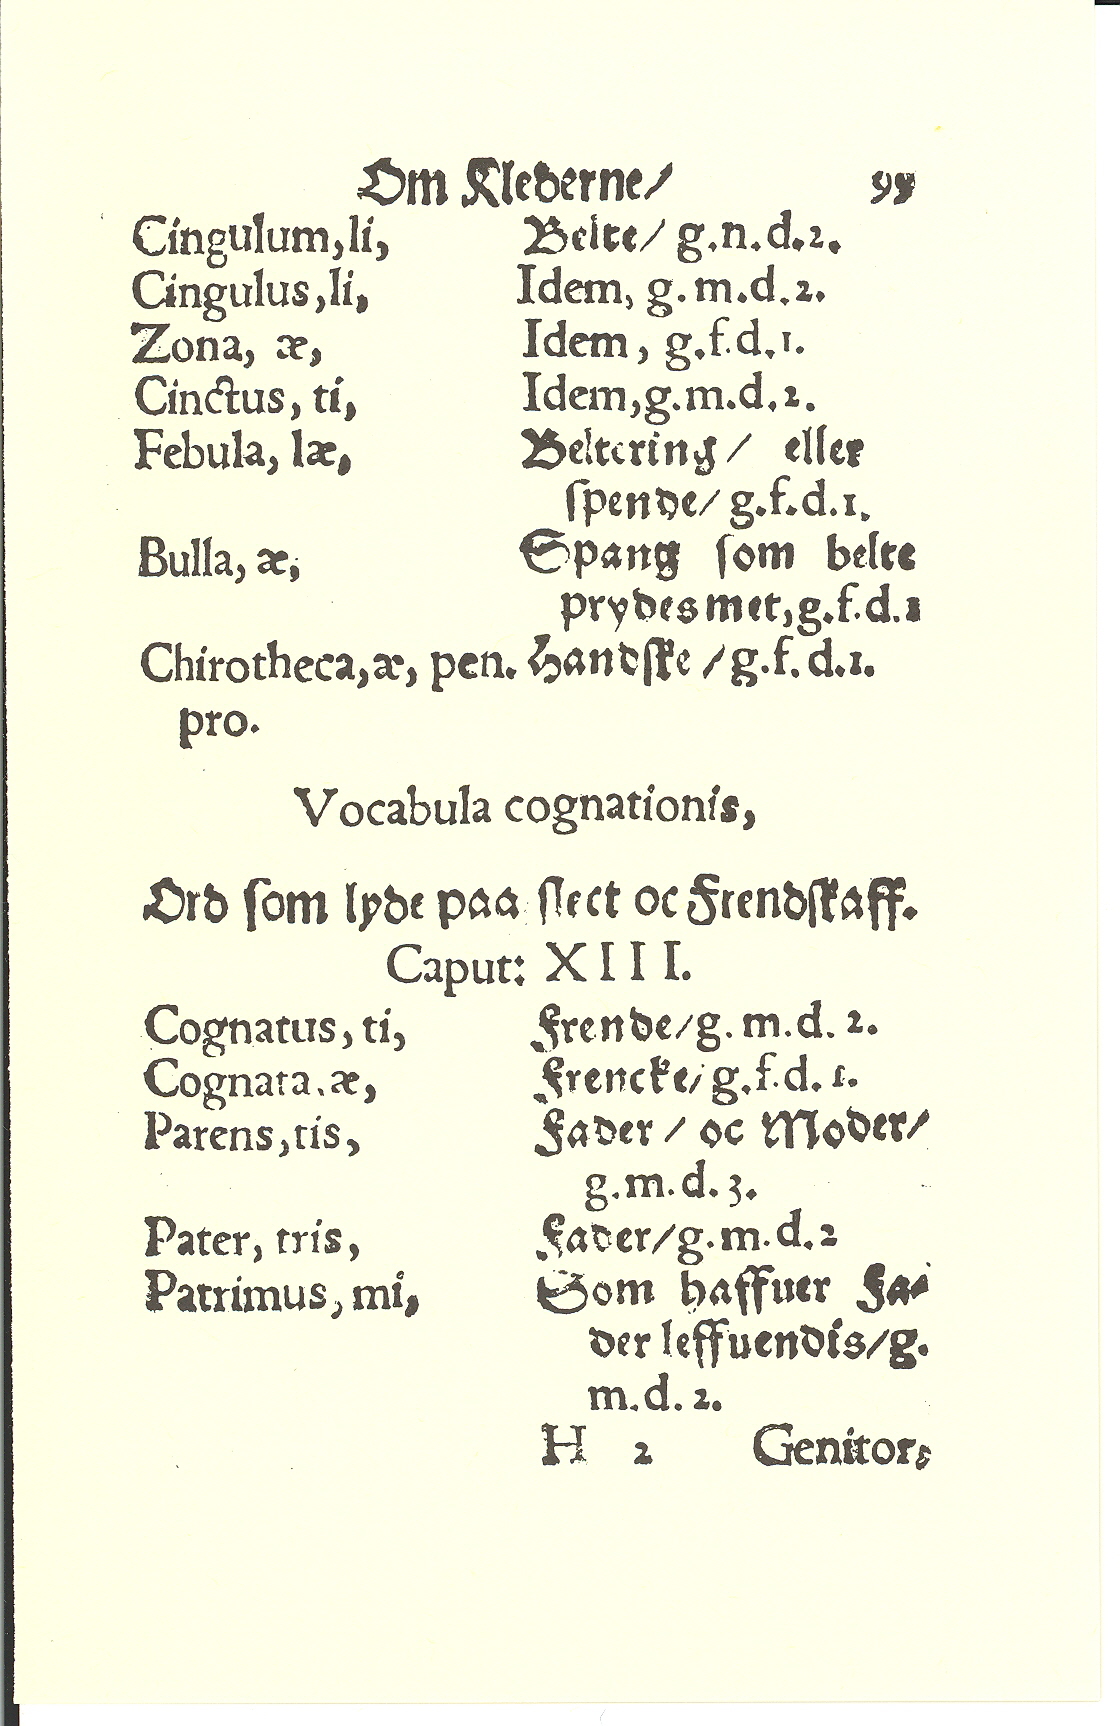 Om Klederne/ 99
Cingulum,li, Belte/ g.n.d.2.
Cingulus,li, Idem, g.m.d.2.
Zona, æ, Idem, g.f.d.1.
Cinctus, ti, Idem,g.m.d.2.
Febula, læ, Beltering/ eller
spende/ g.f.d.1.
Bulla, æ, Spang som belte
prydes met,g.f.d.1
Chirotheca,æ, pen. Handske/g.f.d.1.
pro.
Vocabula cognationis,
Ord som lyde paa slect oc Frendskaff.
Caput: XIII.
Cognatus, ti, Frende/g. m.d. 2.
Cognata.æ, Frencke/g.f.d. 1.
Parens,tis, Fader/ oc Moder/
g.m.d.3.
Pater, tris, Fader/g.m.d.2
Patrimus, mi, Som haffuer Fa-
der leffuendis/g.
m.d.2.
H 2 Genitor,